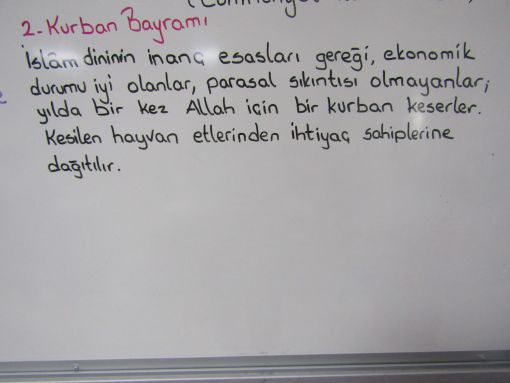 2-Kurban Bayramı
İslâm dininin inanç esasları gereği, ekonomik
durumu iyi olanlar, parasal sıkıntısı olmayanlar;
yılda bir kez Allah için bir kurban keserler.
Kesilen hayvan etlerinden ihtiyaç sahiplerine
dağıtılır.